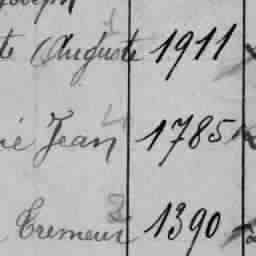 Joseph
te Auguste 1911
ié Jean 1785
Cremeur 1390